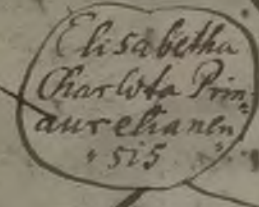 Elisabetha
Charlota Prin-
aurelianen
sis